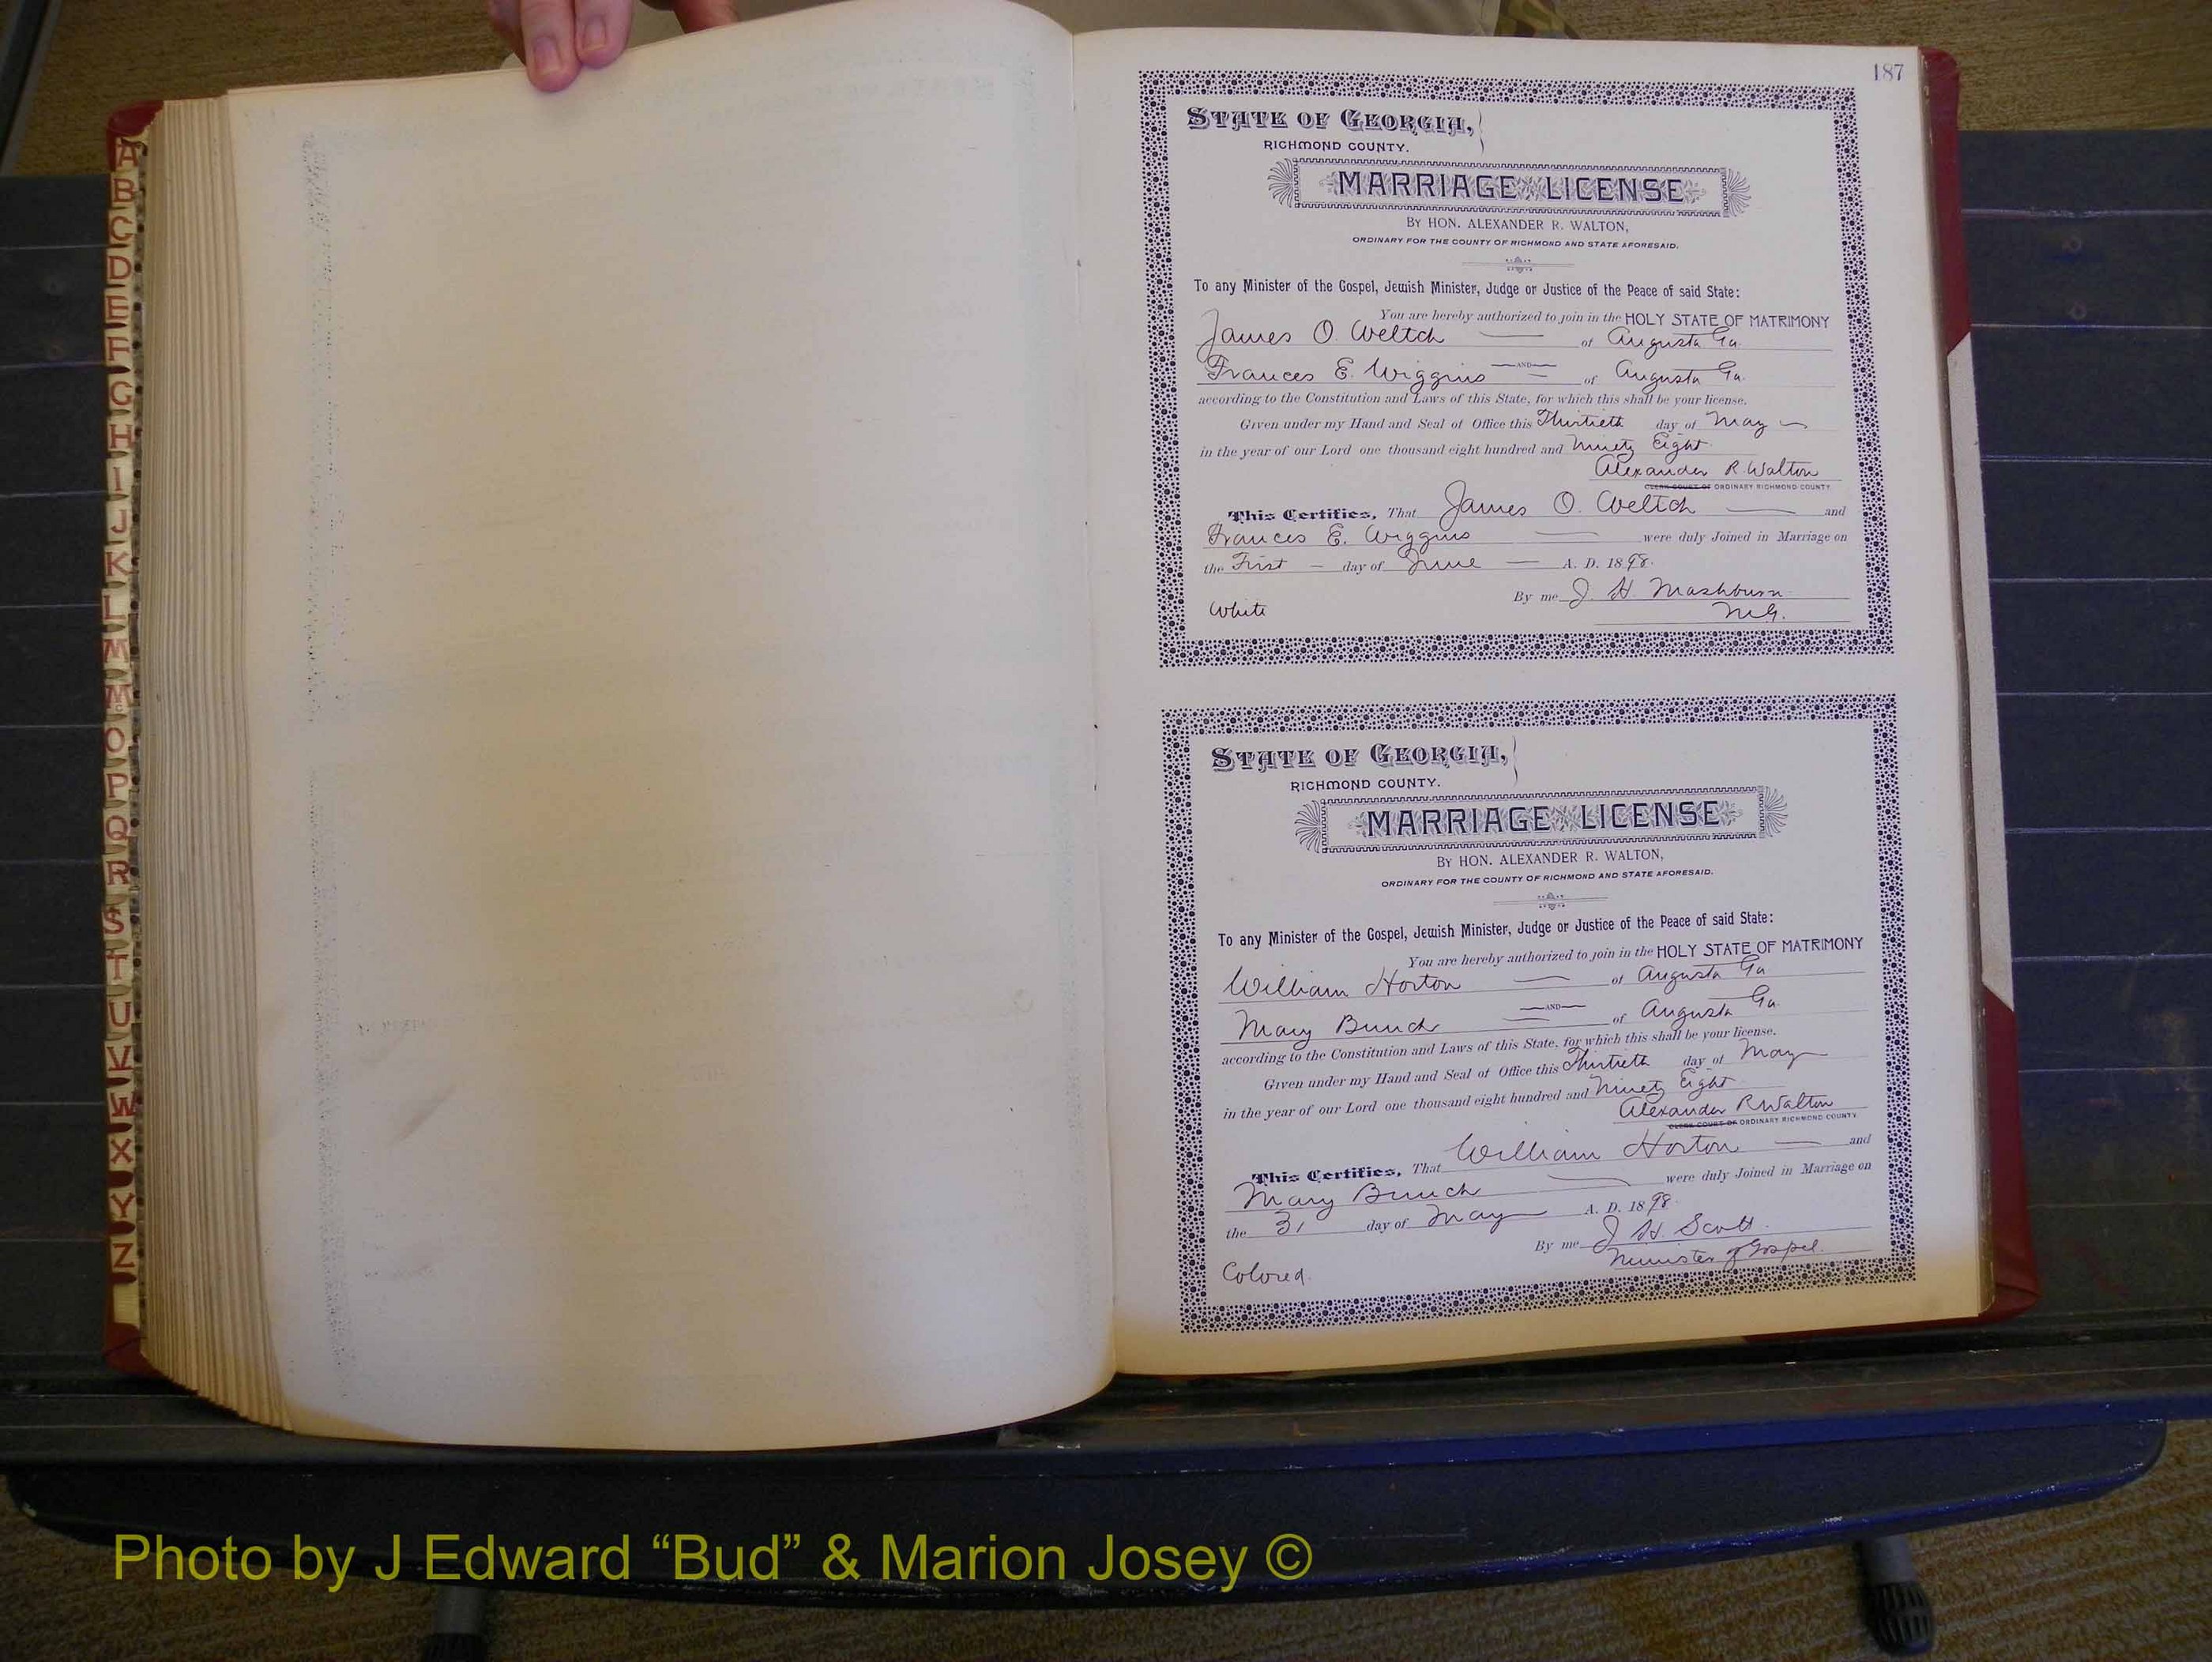 187
STATE OF GEORGIA,
RICHMOND COUNTY.
MARRIAGE LICENSE
BY HON. ALEXANDER R. WALTON,
ORDINARY FOR THE COUNTY OF RICHMOND AND STATE AFORESAID.
To any Minister of the Gospel, Jewish Minister, Judge or Justice of the Peace of said State:
You are hereby authorized to join in the HOLY STATE OF MATRIMONY
James O. Weltch of Augusta Ga.
AND
Frances E. Wiggins of Augusta Ga.
according to the Constitution and Laws of this State, for which this shall be your license.
Given under my Hand and Seal of Office this Thirtieth day of May
in the year of our Lord one thousand eight hundred and Ninety Eight
Alexander R. Walton
CLERK COURT OF ORDINARY RICHMOND COUNTY.
This Certifies, That James O. Weltch and
Frances E. Wiggins were duly Joined in Marriage on
the First day of June A. D. 1898.
By me J. H. Mashburn
White M.G.
STATE OF GEORGIA,
RICHMOND COUNTY.
MARRIAGE LICENSE
BY HON. ALEXANDER R. WALTON,
ORDINARY FOR THE COUNTY OF RICHMOND AND STATE AFORESAID.
To any Minister of the Gospel, Jewish Minister, Judge or Justice of the Peace of said State:
You are hereby authorized to join in the HOLY STATE OF MATRIMONY
William Horton of Augusta Ga
AND
Mary Bunch of Augusta Ga.
according to the Constitution and Laws of this State, for which this shall be your license.
Given under my Hand and Seal of Office this Thirtieth day of May
in the year of our Lord one thousand eight hundred and Ninety Eight
Alexander R Walton
CLERK COURT OF ORDINARY RICHMOND COUNTY.
This Certifies, That William Horton and
Mary Bunch were duly Joined in Marriage on
the 31 day of May A. D. 1898.
By me J. H. Scott.
Minister of Gospel.
Colored.
A
B
C
D
E
F
G
H
I
J
K
L
M
Mc
O
P
Q
R
S
T
U
V
W
X
Y
Z
Photo by J Edward “Bud” & Marion Josey ©